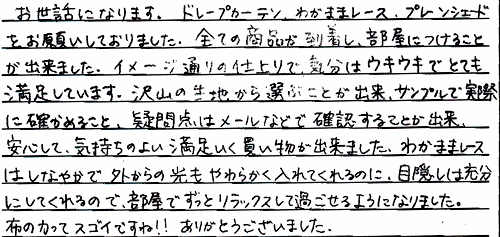 お世話になります。ドレープカーテン、わがままレース、プレーンシェード
をお願いしておりました。全ての商品が到着し、部屋につけること
が出来ました。イメージ通りの仕上りで、気分はウキウキでとても
満足しています。沢山の生地から選ぶことが出来、サンプルで実際
に確かめること、疑問点はメールなどで確認することが出来、
安心して、気持ちのよい満足いく買い物が出来ました。わがままレース
はしなやかで外からの光もやわらかく入れてくれるのに、目隠しは充分
にしてくれるので、部屋でずっとリラックスして過ごせるようになりました。
布の力ってスゴイですね!! ありがとうございました。